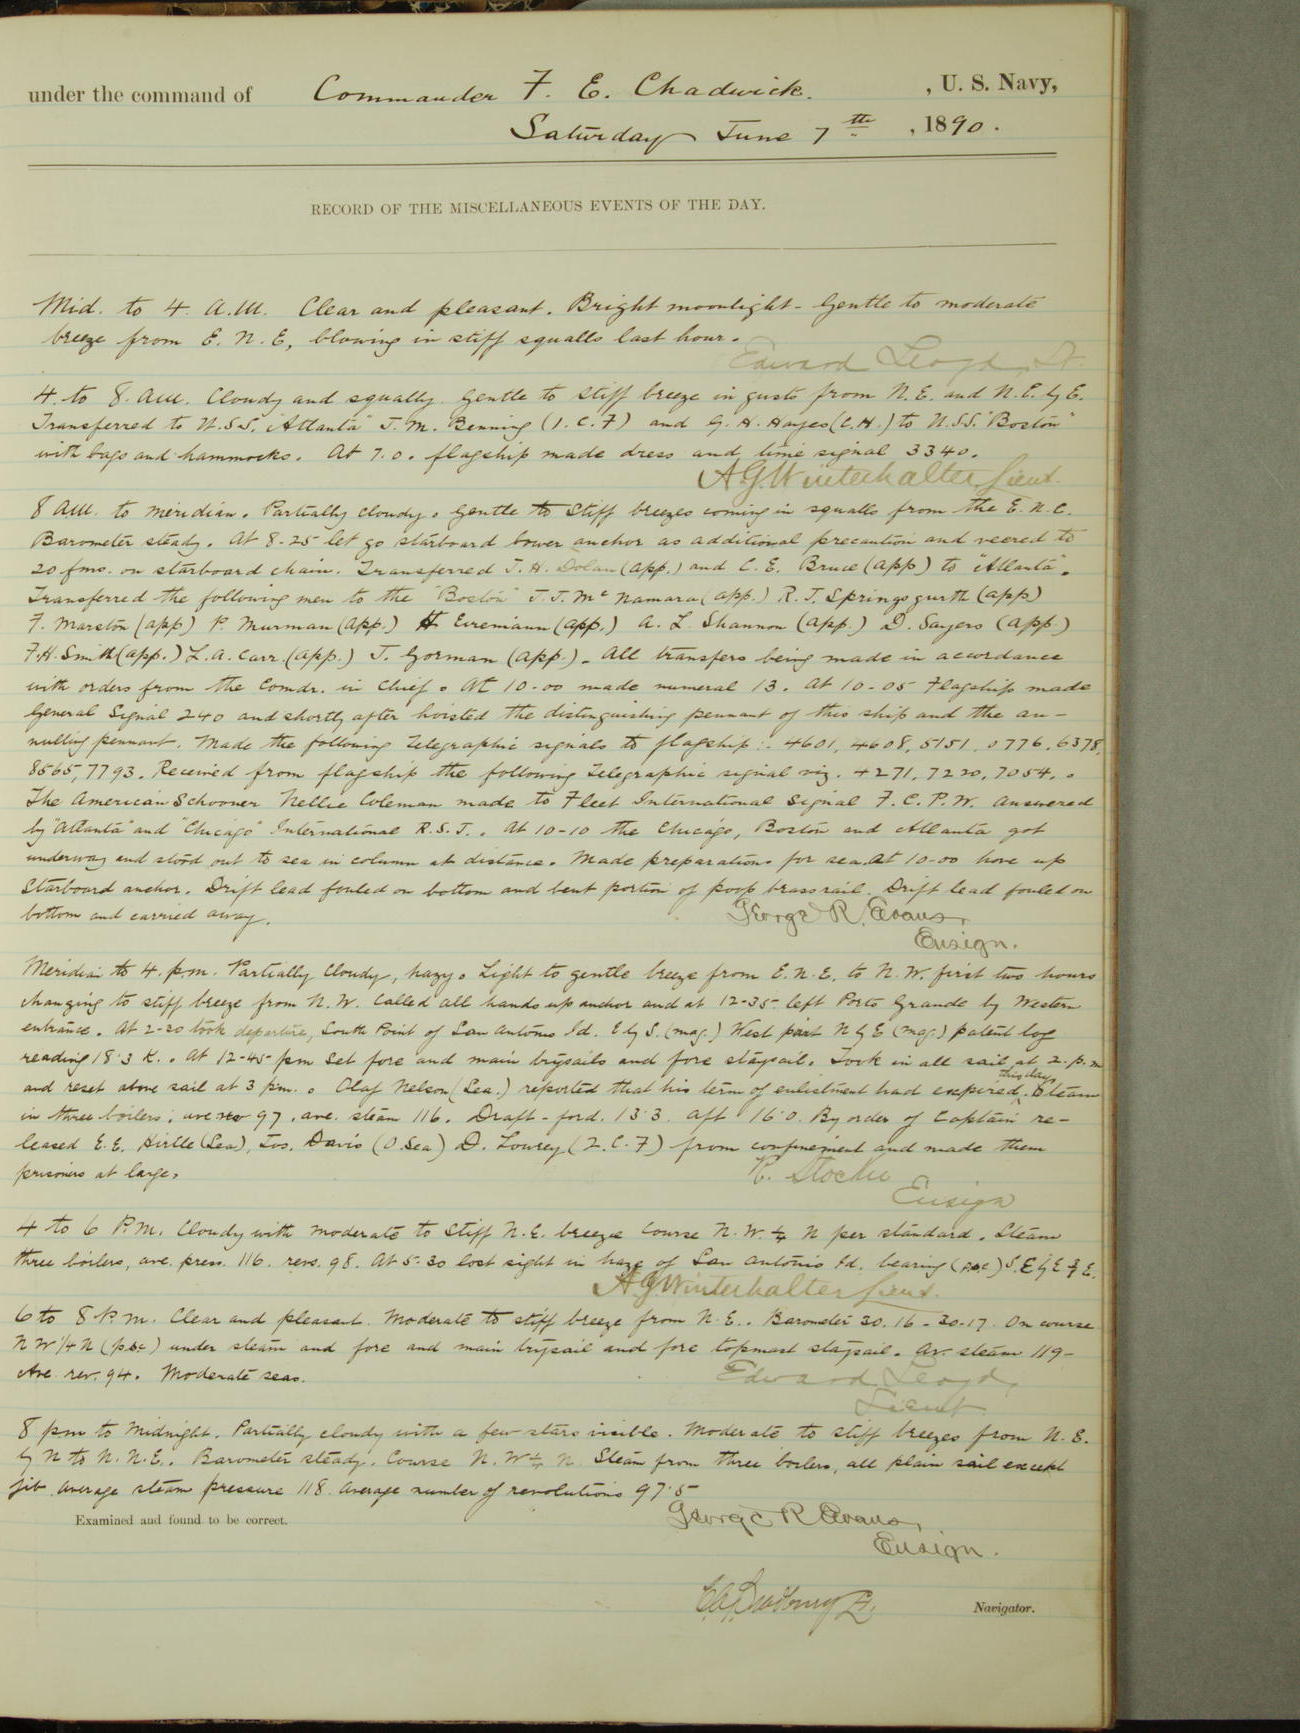 under the command of Commander F. E. Chadwick. , U. S. Navy,
Saturday June 7th , 1890.
RECORD OF THE MISCELLANEOUS EVENTS OF THE DAY.
Mid. to 4 A.M. Clear and pleasant. Bright moonlight - Gentle to moderate
breeze from E. N. E, blowing in stiff squalls last hour.
Edward Lloyd, Lt.
4 to 8 a.m. Cloudy and squally. Gentle to stiff breeze in gusts from N.E. and N.E. by E.
Transferred to U.S.S. "Atlanta" J. M. Benning (1.C.F) and G. H. Hayes (C.H.) to U.S.S. "Boston"
with bags and hammocks. At 7.0. flagship made dress and time signal 3340.
A.G. Winterhalter, Lieut.
8 AM. to meridian. Partially cloudy. Gentle to stiff breezes coming in squalls from the E.N.E.
Barometer steady. At 8-25 let go starboard bower anchor as additional precaution and veered to
20 fms. on starboard chain. Transferred J. H. Dolan (app.) and C. E. Bruce (app) to "Atlanta".
Transferred the following men to the "Boston" J. J. McNamara (app.) R. J. Springsgurth (app)
F. Marston (app) P. Murman (app.) H. Eiremiann (app.) A. L. Shannon (app.) D. Sayers (app.)
F.H. Smith (app.) L. A. Carr. (app.) J. Gorman (app.). All transfers being made in accordance
with orders from the Comdr. in Chief. At 10-00 made numeral 13. At 10-05 Flagship made
General Signal 240 and shortly after hoisted the distinguishing pennant of this ship and the an-
nulling pennant. Made the following Telegraphic signals to flagship :- 4601, 4608, 5151, 0776, 6378,
8565, 7793. Received from flagship the following Telegraphic signal viz. 4271, 7220, 7054.
The American Schooner Nellie Coleman made to Fleet International Signal F. C. P. W. answered
by "Atlanta" and "Chicago" International R.S.T.. At 10-10 the Chicago, Boston and Atlanta got
underway and stood out to sea in column at distance. Made preparations for sea. At 10-00 hove up
Starboard anchor. Drift lead fouled on bottom and bent portion of poop brass rail. Drift lead fouled on
bottom and carried away.
George R. Evans,
Ensign.
Meridian to 4. p.m. Partially cloudy, hazy. Light to gentle breeze from E.N.E. to N.W. first two hours
changing to stiff breeze from N.W. Called all hands up anchor and at 12-35 left Porto Grande by Western
entrance. At 2-20 took departure, South Point of San Antonio Id. E by S. (mag.) West part N by E (mag.) patent log
reading 18.3 K.. At 12-45 pm set fore and main trysails and fore staysail. Took in all sail at 2. p.m
and reset above sail at 3 p.m.. Olaf Nelson (Sea.) reported that his term of enlistment had expired this day. Steam
in three boilers; ave rev 97. ave. steam 116. Draft - ford. 13.3. aft 16.0. By order of Captain re-
leased E. E. Hirlle (Sea), Jos. Davis (O.Sea) D. Lowrey (2.C.F) from confinement and made them
prisoners at large.
Ensign
4 to 6 P.M. Cloudy with moderate to stiff N.E. breeze Course N. W. ¼ N per standard. Steam
three boilers, ave. press. 116. revs. 98. At 5-30 lost sight in haze of San Antonio Id. bearing (p.s.c) S.E by E ¾ E.
A.G. Winterhalter, Lieut.
6 to 8 P.m. Clear and pleasant. Moderate to stiff breeze from N.E.. Barometer 30.16 - 30-17. On course
N W 1/4 N (psc) under steam and fore and main trysail and fore topmast staysail. Av. steam 119-
Ave rev. 94. Moderate seas.
Edward Lloyd,
Lieut
8 pm to Midnight. Partially cloudy with a few stars visible. Moderate to stiff breezes from N.E.
by N to N.N.E.. Barometer steady. Course N. W ¼ N. Steam from three boilers, all plain sail except
jib. average steam pressure 118. average number of revolutions 97.5
Examined and found to be correct.
George R. Evans,
Ensign.
Navigator.